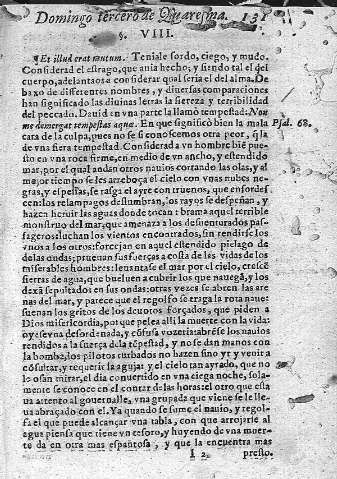 Domingo tercero de Quaresma. 131
§. VIII.
¶Et illud erat mutum. Teniale sordo, ciego, y mudo.
Considerad el estrago, que auia hecho; y siendo tal el del
cuerpo, adelantaos a considerar qual seria el del alma. De
baxo de differentes nombres, y diuersas comparaciones
han significado las diuinas letras la fiereza y terribilidad
del peccado. Dauid en vna parte la llamò tempestad: Non
me demergat tempestas aquæ. En que significò bien la mala Psal. 68.
cata de la culpa, pues no se si conoscemos otra peor, q̃ la
de vna fiera tempestad. Considerad a vn hombre biẽ pue-
sto en vna roca firme, en medio de vn ancho, y estendido
mar, por el qual andan otros nauios cortando las olas, y al
mejor tiempo se les arreboça el cielo con vnas nubes ne-
gras, y espessas, se rasga el ayre con truenos, que ensordes
cen: los relampagos deslumbran, los rayos se despeñan, y
hazen heruir las aguas donde tocan: brama aquel terrible
monstruo del mar, que amenaza a los desuenturados pas-
sageros: luchan los vientos encontrados, sin rendirse los
vnos a los otros: forcejan en aquel estendido pielago de
de las ondas; prueuan sus fuerças a costa de las vidas de los
miserables hombres: leuantase el mar por el cielo, crescẽ
sierras de agua, que bueluen a cubrir los que nauegã, y los
dexã sepultados en sus ondas: otras vezes se abren las are
nas del mar, y parece que el regolfo se traga la rota naue:
suenan los gritos de los deuotos forçados, que piden a
Dios misericordia, por que pelea alli la muerte con la vida:
oyese vna desordenada, y cõfusa vozeria: abrese los nauios
rendidos a la fuerça de la tẽpestad, y no se dan manos con
la bomba, los pilotos turbados no hazen sino yr y venir a
cõsultar, y requerir la aguja: y el cielo tan ayrado, que no
le osan mirar, el dia conuertido en vna ciega noche, sola-
mente se conoce en el contar de las horas: el otro que esta
ua attento al gouernalle, vna grupada que viene se le lle-
ua abraçado con el. Ya quando se sume el nauio, y regol-
fa el que puede alcançar vna tabla, con que arrojarse al
agua piensa que tiene vn tesoro, y huyendo de vna muer-
te da en otra mas espantosa, y que la encuentra mas
I 2 presto.